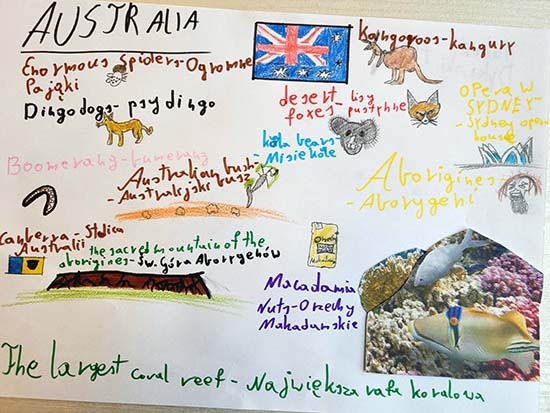 AUSTRALIA
Enormous spiders-Ogromne
Pająki
Dingodogs-psy dingo
Kangooroos-kangury
desert - lisy
foxes- pustynne
OPERA W
SYDNEY
- Sydney opera
house
kola bears
- Misie kole
Boomerang-bumerang
Australian bush
- Australijski busz
Aborigines-
- Aborygeni
Canberra - Stolica
Australii
the sacred mountain of the
aborigines-Św. Góra Aborygenów
Macadamia
Nuts-Orzechy
Makadamskie
The largest coral reef - Największa rafa koralowa